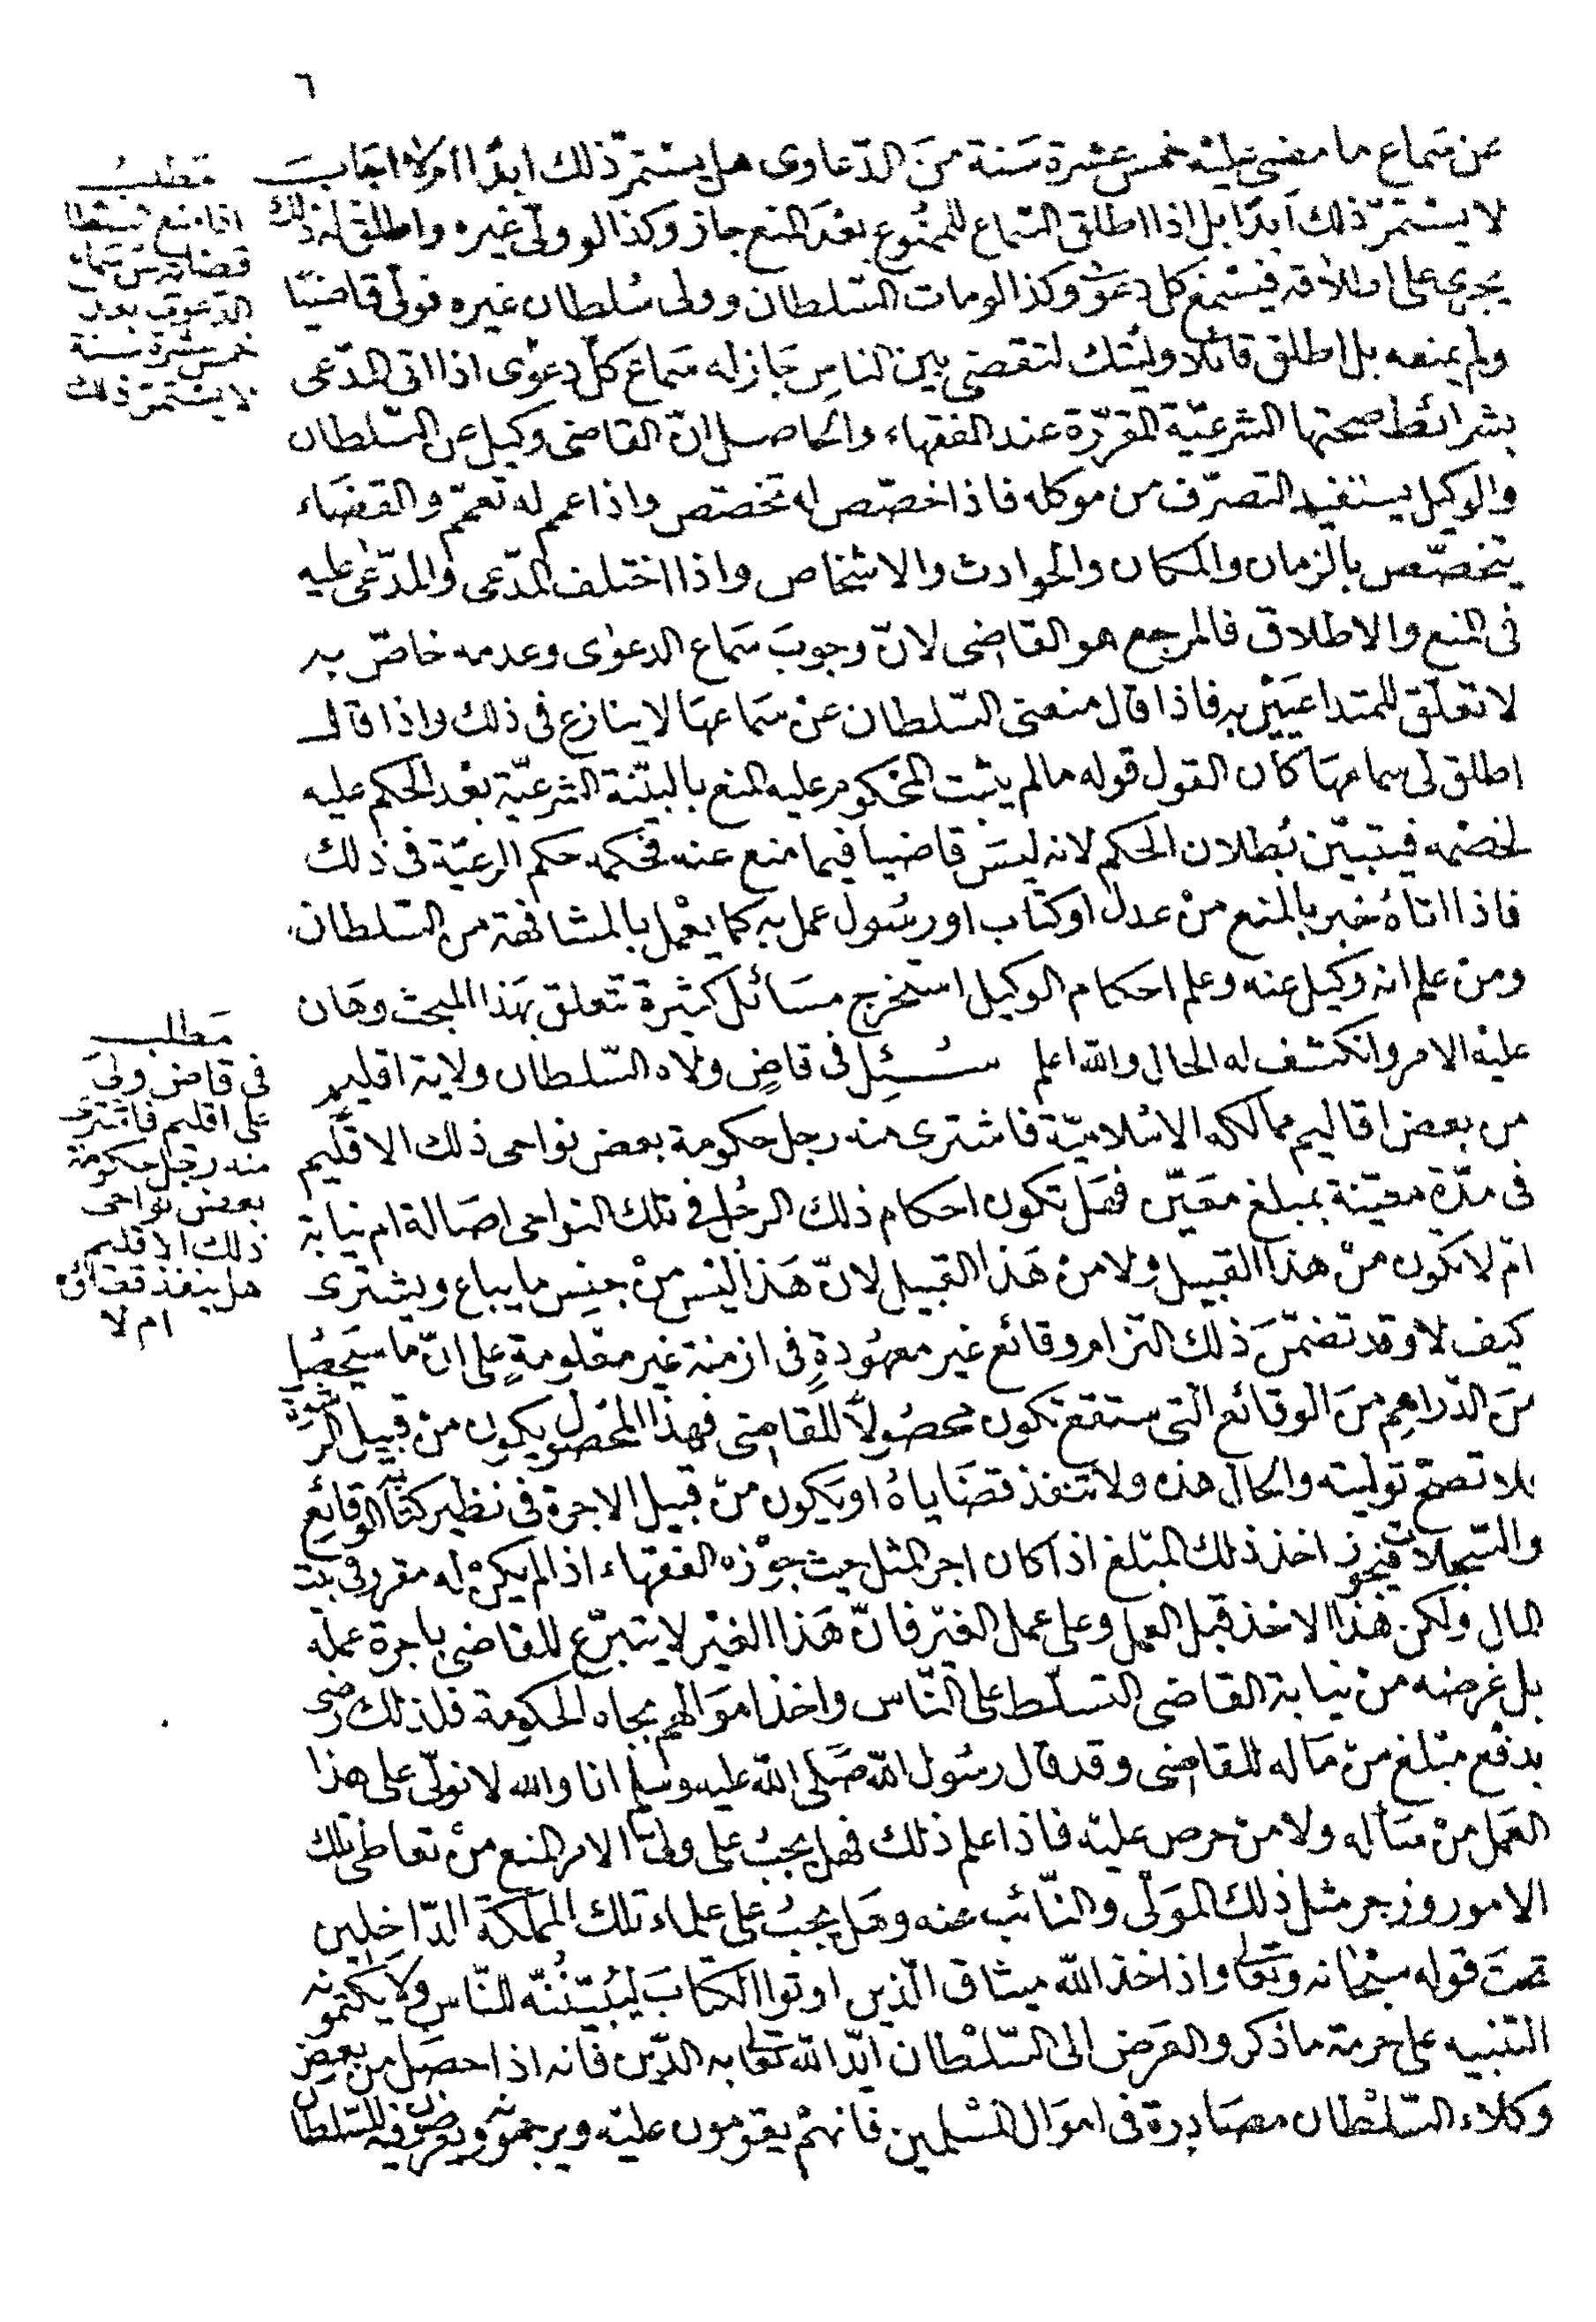 ٦
عن سماع ما مضى عليه خمس عشرة سنة من الدعاوى هل يستمر ذلك ابدا ام لا اجاب
لا يستمر ذلك ابدا بل اذا اطلق السماع للممنوع بعد المنع جاز وكذا لو ولى غيره واطلق له ذلك
يجرى على اطلاقه فيسمع كل دعوى وكذا لو مات السلطان وولى سلطان غيره فولى قاضيا
ولم يمنعه بل اطلق قائلا وليتك لتقضى بين الناس جاز له سماع كل دعوى اذا اتى المدعى
بشرائط صحتها الشرعية المقررة عند الفقهاء والحاصل ان القاضى وكيل عن السلطان
والوكيل يستفيد التصرف من موكله فاذا خصص له تخصص واذا عمم له تعمم والقضاء
يتخصص بالزمان والمكان والحوادث والاشخاص واذا اختلف المدعى والمدعى عليه
فى المنع والاطلاق فالمرجع هو القاضى لان وجوب سماع الدعوى وعدمه خاص به
لا تعلق للمتداعيين به فاذا قال منعنى السلطان عن سماعها لا ينازع فى ذلك واذا قال
اطلق لى سماعها كان القول قوله ما لم يثبت المحكوم عليه المنع بالبينة الشرعية بعد الحكم عليه
لخصمه فيتبين بطلان الحكم لانه ليس قاضيا فيما منع عنه فحكمه حكم الرعية فى ذلك
فاذا اتاه خبر بالمنع من عدل او كتاب او رسول عمل به كما يعمل بالمشافهة من السلطان
ومن علم انه وكيل عنه وعلم احكام الوكيل استخرج مسائل كثيرة تتعلق بهذا المبحث وهان
عليه الامر وانكشف له الحال والله اعلم سئل فى قاض ولاه السلطان ولاية اقليم
من بعض اقاليم ممالكه الاسلامية فاشترى منه رجل حكومة بعض نواحى ذلك الاقليم
فى مدة معينة بمبلغ معين فهل تكون احكام ذلك الرجل فى تلك النواحى اصالة ام نيابة
ام لا تكون من هذا القبيل ولا من هذا القبيل لان هذا ليس من جنس ما يباع ويشترى
كيف لا وقد تضمن ذلك التزام وقائع غير معهودة فى ازمنة غير معلومة على ان ما سيحصل
من الدراهم من الوقائع التى ستقع تكون محصولا للقاضى فهذا المحصول يكون من قبيل الرشوة
فلا تصح توليته والحال هذه ولا تنفذ قضاياه او يكون من قبيل الاجرة فى نظير كتابة الوقائع
والسجلات فيجوز اخذ ذلك المبلغ اذا كان اجر المثل حيث جوزه الفقهاء اذا لم يكن له مقرر فى بيت
المال ولكن هذا الاخذ قبل العمل وعلى عمل الغير فان هذا الغير لا يتبرع للقاضى باجرة عمله
بل غرضه من نيابة القاضى التسلط على الناس واخذ اموالهم بجاه الحكومة فلذلك رضى
بدفع مبلغ من ماله للقاضى وقد قال رسول الله صلى الله عليه وسلم انا والله لا نولى على هذا
العمل من سأله ولا من حرص عليه فاذا علم ذلك فهل يجب على ولى الامر المنع من تعاطى تلك
الامور وزجر مثل ذلك المولى والنائب عنه وهل يجب على علماء تلك المملكة الداخلين
تحت قوله سبحانه وتعالى واذ اخذ الله ميثاق الذين اوتوا الكتاب ليبيننه للناس ولا يكتمونه
التنبيه على حرمة ما ذكر والعرض الى السلطان ايد الله تعالى به الدين فانه اذا حصل من بعض
وكلاء السلطان مصادرة فى اموال المسلمين فانهم يقومون عليه ويرجمونه ويعرضون فيه للسلطان
مطلب
اذا منع السلطان
قضاته من سماع
الدعوى بعد
خمس عشرة سنة
لا يستمر ذلك
مطلب
فى قاض ولى
على اقليم فاشترى
منه رجل حكومة
بعض نواحى
ذلك الاقليم
هل ينفذ قضاؤه
ام لا